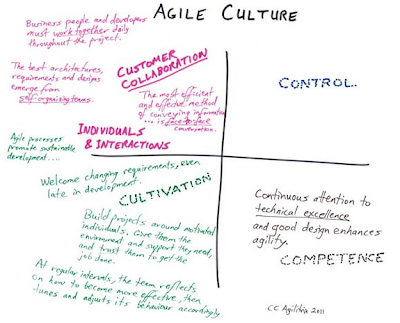 AGILE CULTURE
Business people and developers
must work together daily
throughout the project.
The best architectures,
requirements and designs
emerge from
self-organizing teams.
CUSTOMER
COLLABORATION
The most efficient
and effective method
of conveying information
... is face-to-face
conversation.
Agile processes
promote sustainable
development....
INDIVIDUALS
& INTERACTIONS
CONTROL.
Welcome changing requirements, even
late in development.
CULTIVATION
Build projects around motivated
individuals. Give them the
environment and support they need,
and trust them to get the
job done.
At regular intervals, the team reflects
on how to become more effective, then
tunes and adjusts its behaviour accordingly
Continuous attention to
technical excellence
and good design enhances
agility.
COMPETENCE
CC Agilitrix 2011